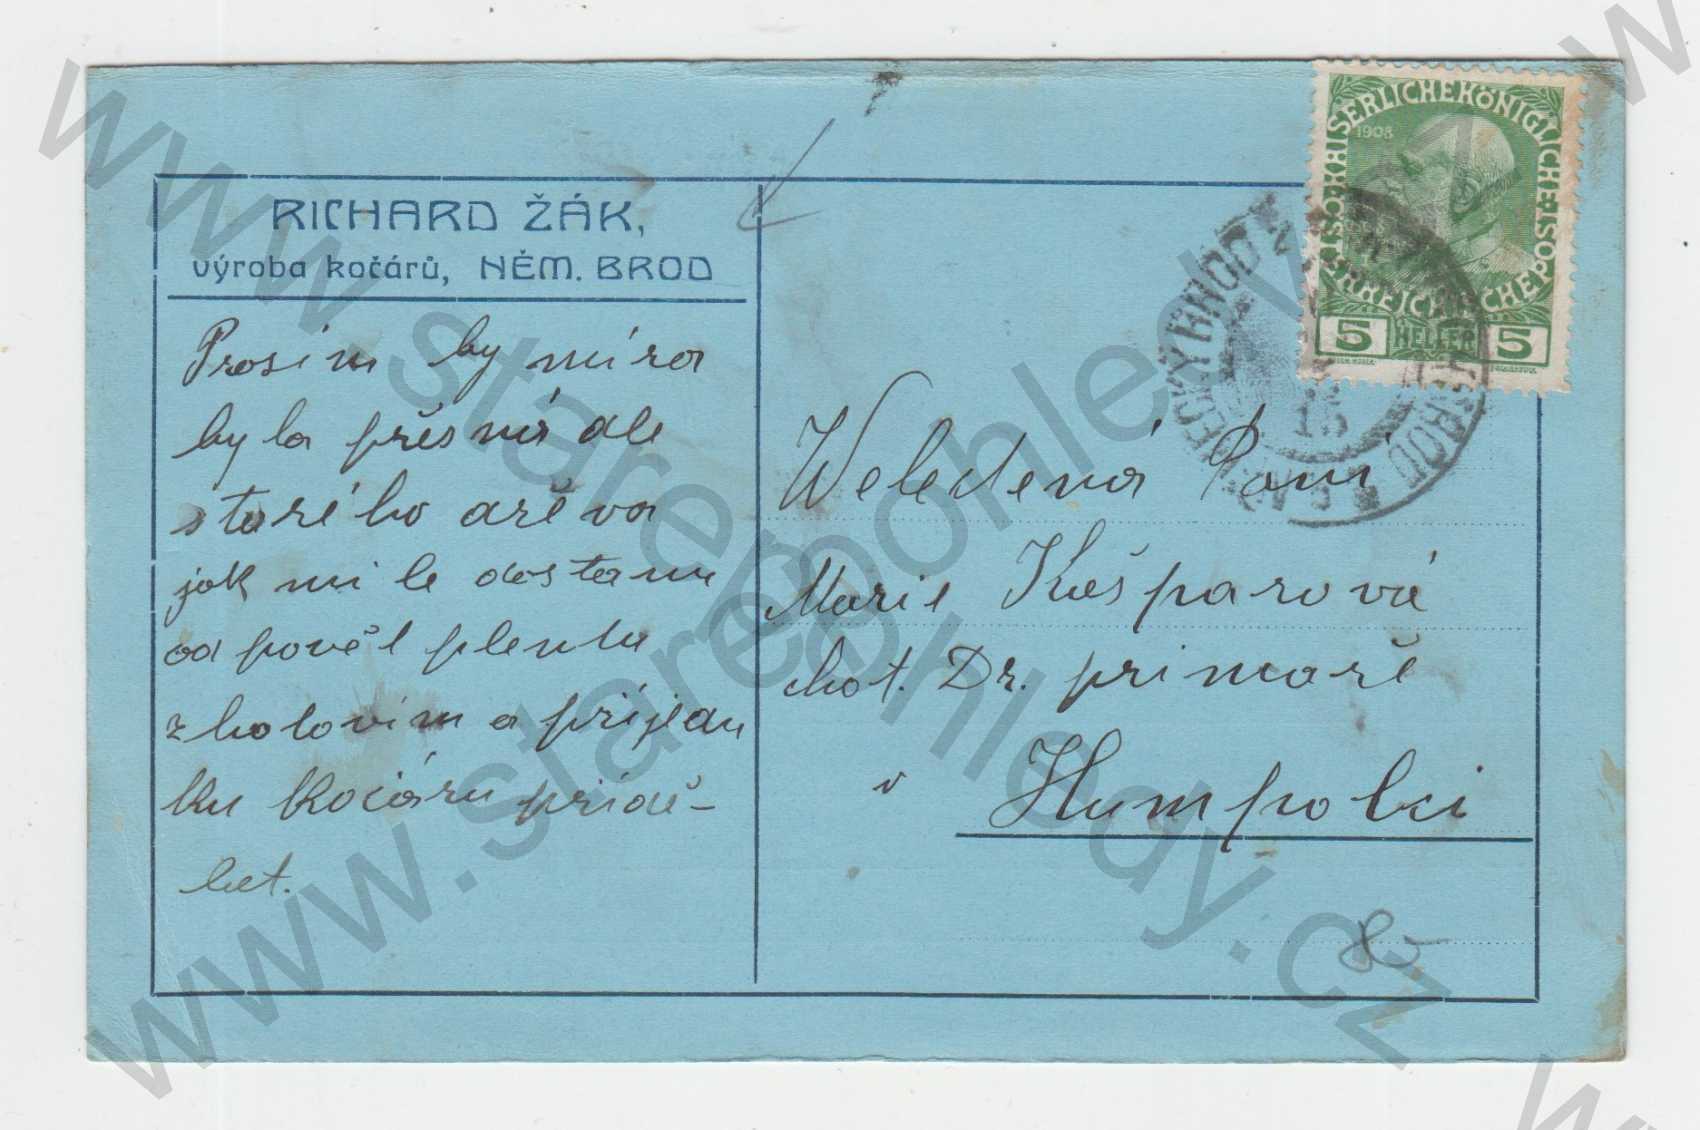 RICHARD ŽÁK,
výroba kočárů, NĚM. BROD
Prosím by míra
byla přesná ale
starého dřeva
jak mile dostanu
odpověd plentu
zhotovím a přijedu
ku kočáru přidě-
lat.
KAISERLICHE KÖNIGLICHE ÖSTERREICHISCHE POST
1908
5 HELLER 5
NĚMECKÝ BROD
Weledená Paní
Marie Kašparová
chot. Dr. primaře
v Humpolci
www.starepohledy.cz
www.starepohledy.cz